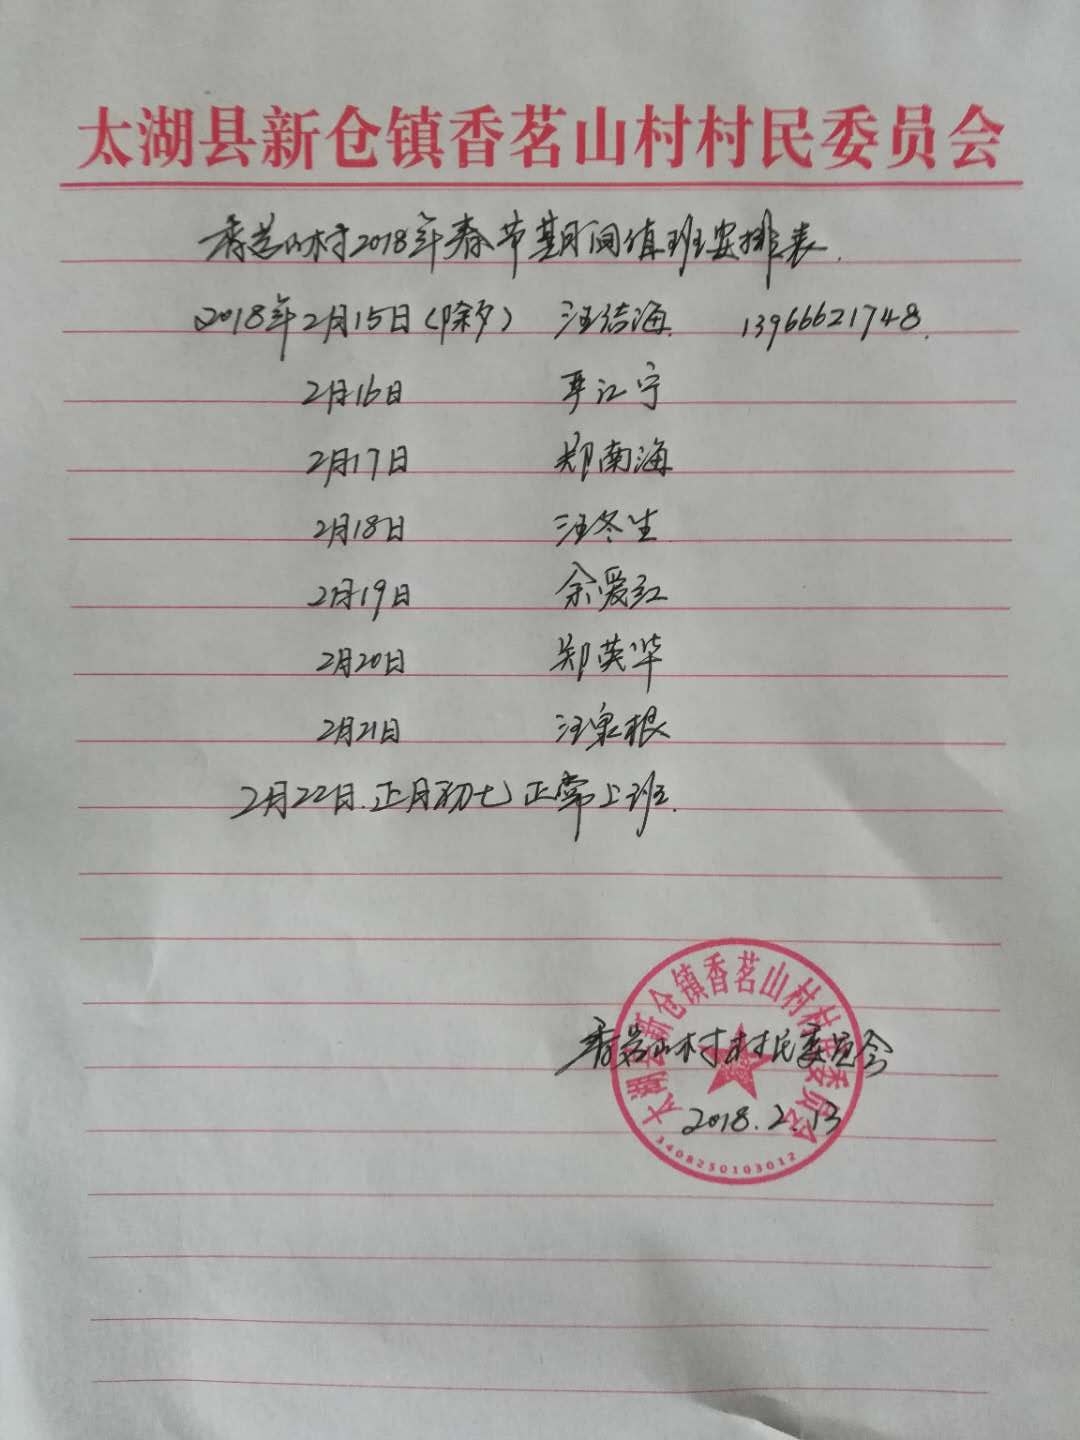 太湖县新仓镇香茗山村村民委员会
香茗山村2018年春节期间值班安排表.
2018年2月15日(除夕) 汪结海 13966621748.
2月16日 严江宁
2月17日 郑南海
2月18日 汪冬生
2月19日 余爱红
2月20日 郑英华
2月21日 汪泉根
2月22日.正月初七正常上班.
太湖县新仓镇香茗山村村民委员会
香茗山村村民委员会
2018.2.13
3408250103012